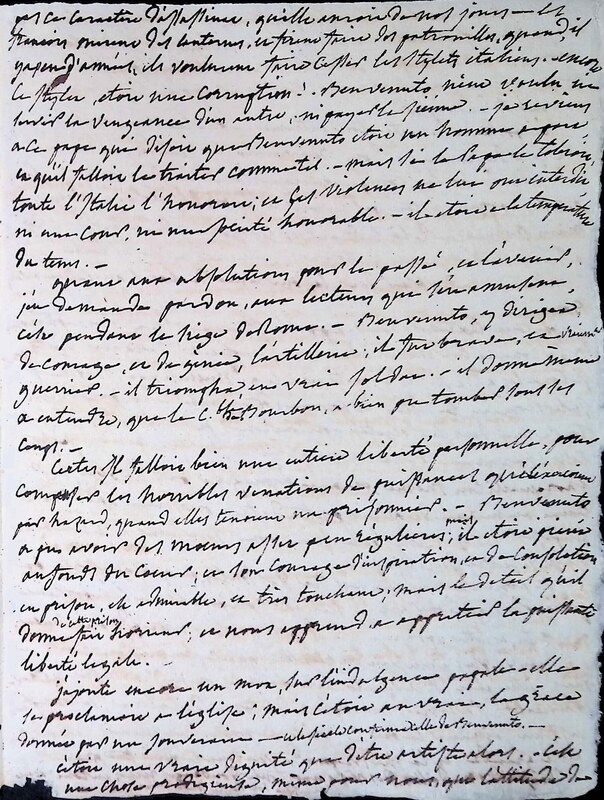 pas ce caractère d'assassinat, qu'elle auroit de nos jours — et
françois mirent des lanternes, et firent faire des patrouilles, quand, il
d'années, ils voulurent faire cesser les stylets italiens. — encore
le stylet, étoit une corruption. Benvenuto, n'eut voulu ni
servir la vengeance d'un autre, ni payer la sienne. — je reviens
à ce pape qui disoit que Benvenuto étoit un homme à part
et qu'il falloit le traiter comme tel. — mais si le Pape le toleroit,
toute l'Italie l'honoroit; et ses violences ne lui ont interdit
ni une cour, ni une société honorable. — il étoit à la température
du tems. —
quant aux absolutions pour le passé, et l'avenir,
j'en demande pardon, aux lecteurs que
pendant le siège de Rome. — Benvenuto, y dirigea
de courage, et de génie, l'artillerie; il fut brave, et vraiment
guerrier. — il triompha en vrai soldat. — il donne même
à entendre, que le C.ble de Bourbon, a bien pu tomber sous ses
coups. —
Certes il falloit bien une entière liberté personnelle, pour
compenser les horribles vexations de puissance qu'éxerçoient
par hazard, quand elles tenoient un prisonnier. — Benvenuto
a pu avoir des mœurs assez peu régulières; mais il étoit
au fonds du cœur; et son courage d'inspiration, et de consolation
en prison, est admirable, et très touchant; mais le détail qu'il
donne de cette prison fait horreur; et nous apprend à apprécier la puissante
liberté légale. —
j'ajoute encore un mot, sur l'indulgence papale. elle
se proclamoit à l'église; mais c'étoit au vrai, la grâce
donnée par un souverain — et le siècle confirma celle de Benvenuto. —
c'étoit une vraie dignité que d'être artiste alors. — c'est
une chose prodigieuse, même pour nous, que l'attitude de